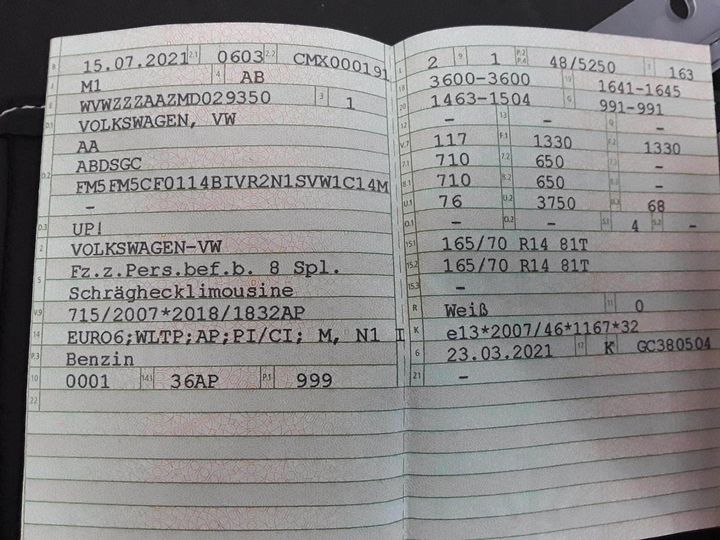 B 15.07.2021 2.1 0603 2.2 CMX000191
J M1 4 AB
E WVWZZZAAZMD029350 3 1
D.1 VOLKSWAGEN, VW
AA
D.2 ABDSGC
FM5FM5CF0114BIVR2N1SVW1C14M
-
D.3 UP!
2 VOLKSWAGEN-VW
5 Fz.z.Pers.bef.b. 8 Spl.
Schräghecklimousine
V.9 715/2007*2018/1832AP
14 EURO6;WLTP;AP;PI/CI; M, N1 I
P.3 Benzin
10 0001 14.1 36AP P.1 999
22
L 2 9 1 P.2 P.4 48/5250 T 163
18 3600-3600 19 1641-1645
20 1463-1504 G 991-991
12 - 13 - Q -
V.7 117 F.1 1330 F.2 1330
7.1 710 7.2 650 -
8.1 710 8.2 650 -
U.1 76 U.2 3750 U.3 68
O.1 - O.2 - S.1 4 S.2 -
15.1 165/70 R14 81T
15.2 165/70 R14 81T
15.3 -
R Weiß 11 0
K e13*2007/46*1167*32
6 23.03.2021 17 K GC380504
21 -